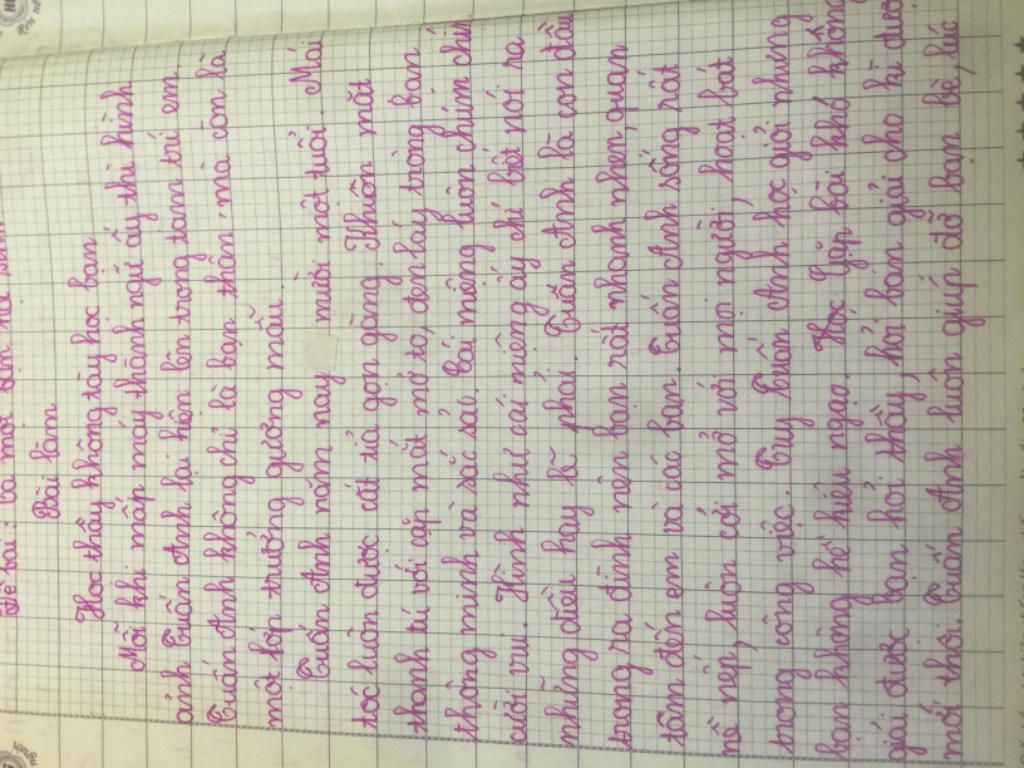 Đề bài: Tả một
Bài làm
Học thầy không tày học bạn
Mỗi khi mấp máy thành ngữ ấy thì hình
ảnh Tuấn Anh lại hiện lên trong tâm trí em
Tuấn Anh không chỉ là bạn thân mà còn là
một lớp trưởng gương mẫu.
Tuấn Anh năm nay mười một tuổi. Mái
tóc luôn được cắt tỉa gọn gàng. Khuôn mặt
thanh tú với cặp mắt mở to, đen láy trông bạn
thông minh và sắc sảo. Cái miệng luôn chúm chím
cười vui. Hình như cái miệng ấy chỉ bốt nói ra
những điều hay lẽ phải. Tuấn Anh là con đầu
trong ra đình nên bạn rất nhanh nhẹn, quan
tâm đến em và các bạn. Tuấn Anh sống rất
nề nếp, luôn cởi mở với mọi người, hoạt bát
trong công việc. Tuy Tuấn Anh học giỏi nhưng
bạn không hề kiêu ngạo. Gặp bài khó không
giải được bạn hỏi thầy, hỏi bạn giải cho kì được
mới thôi. Tuấn Anh luôn giúp đỡ bạn bè, lúc